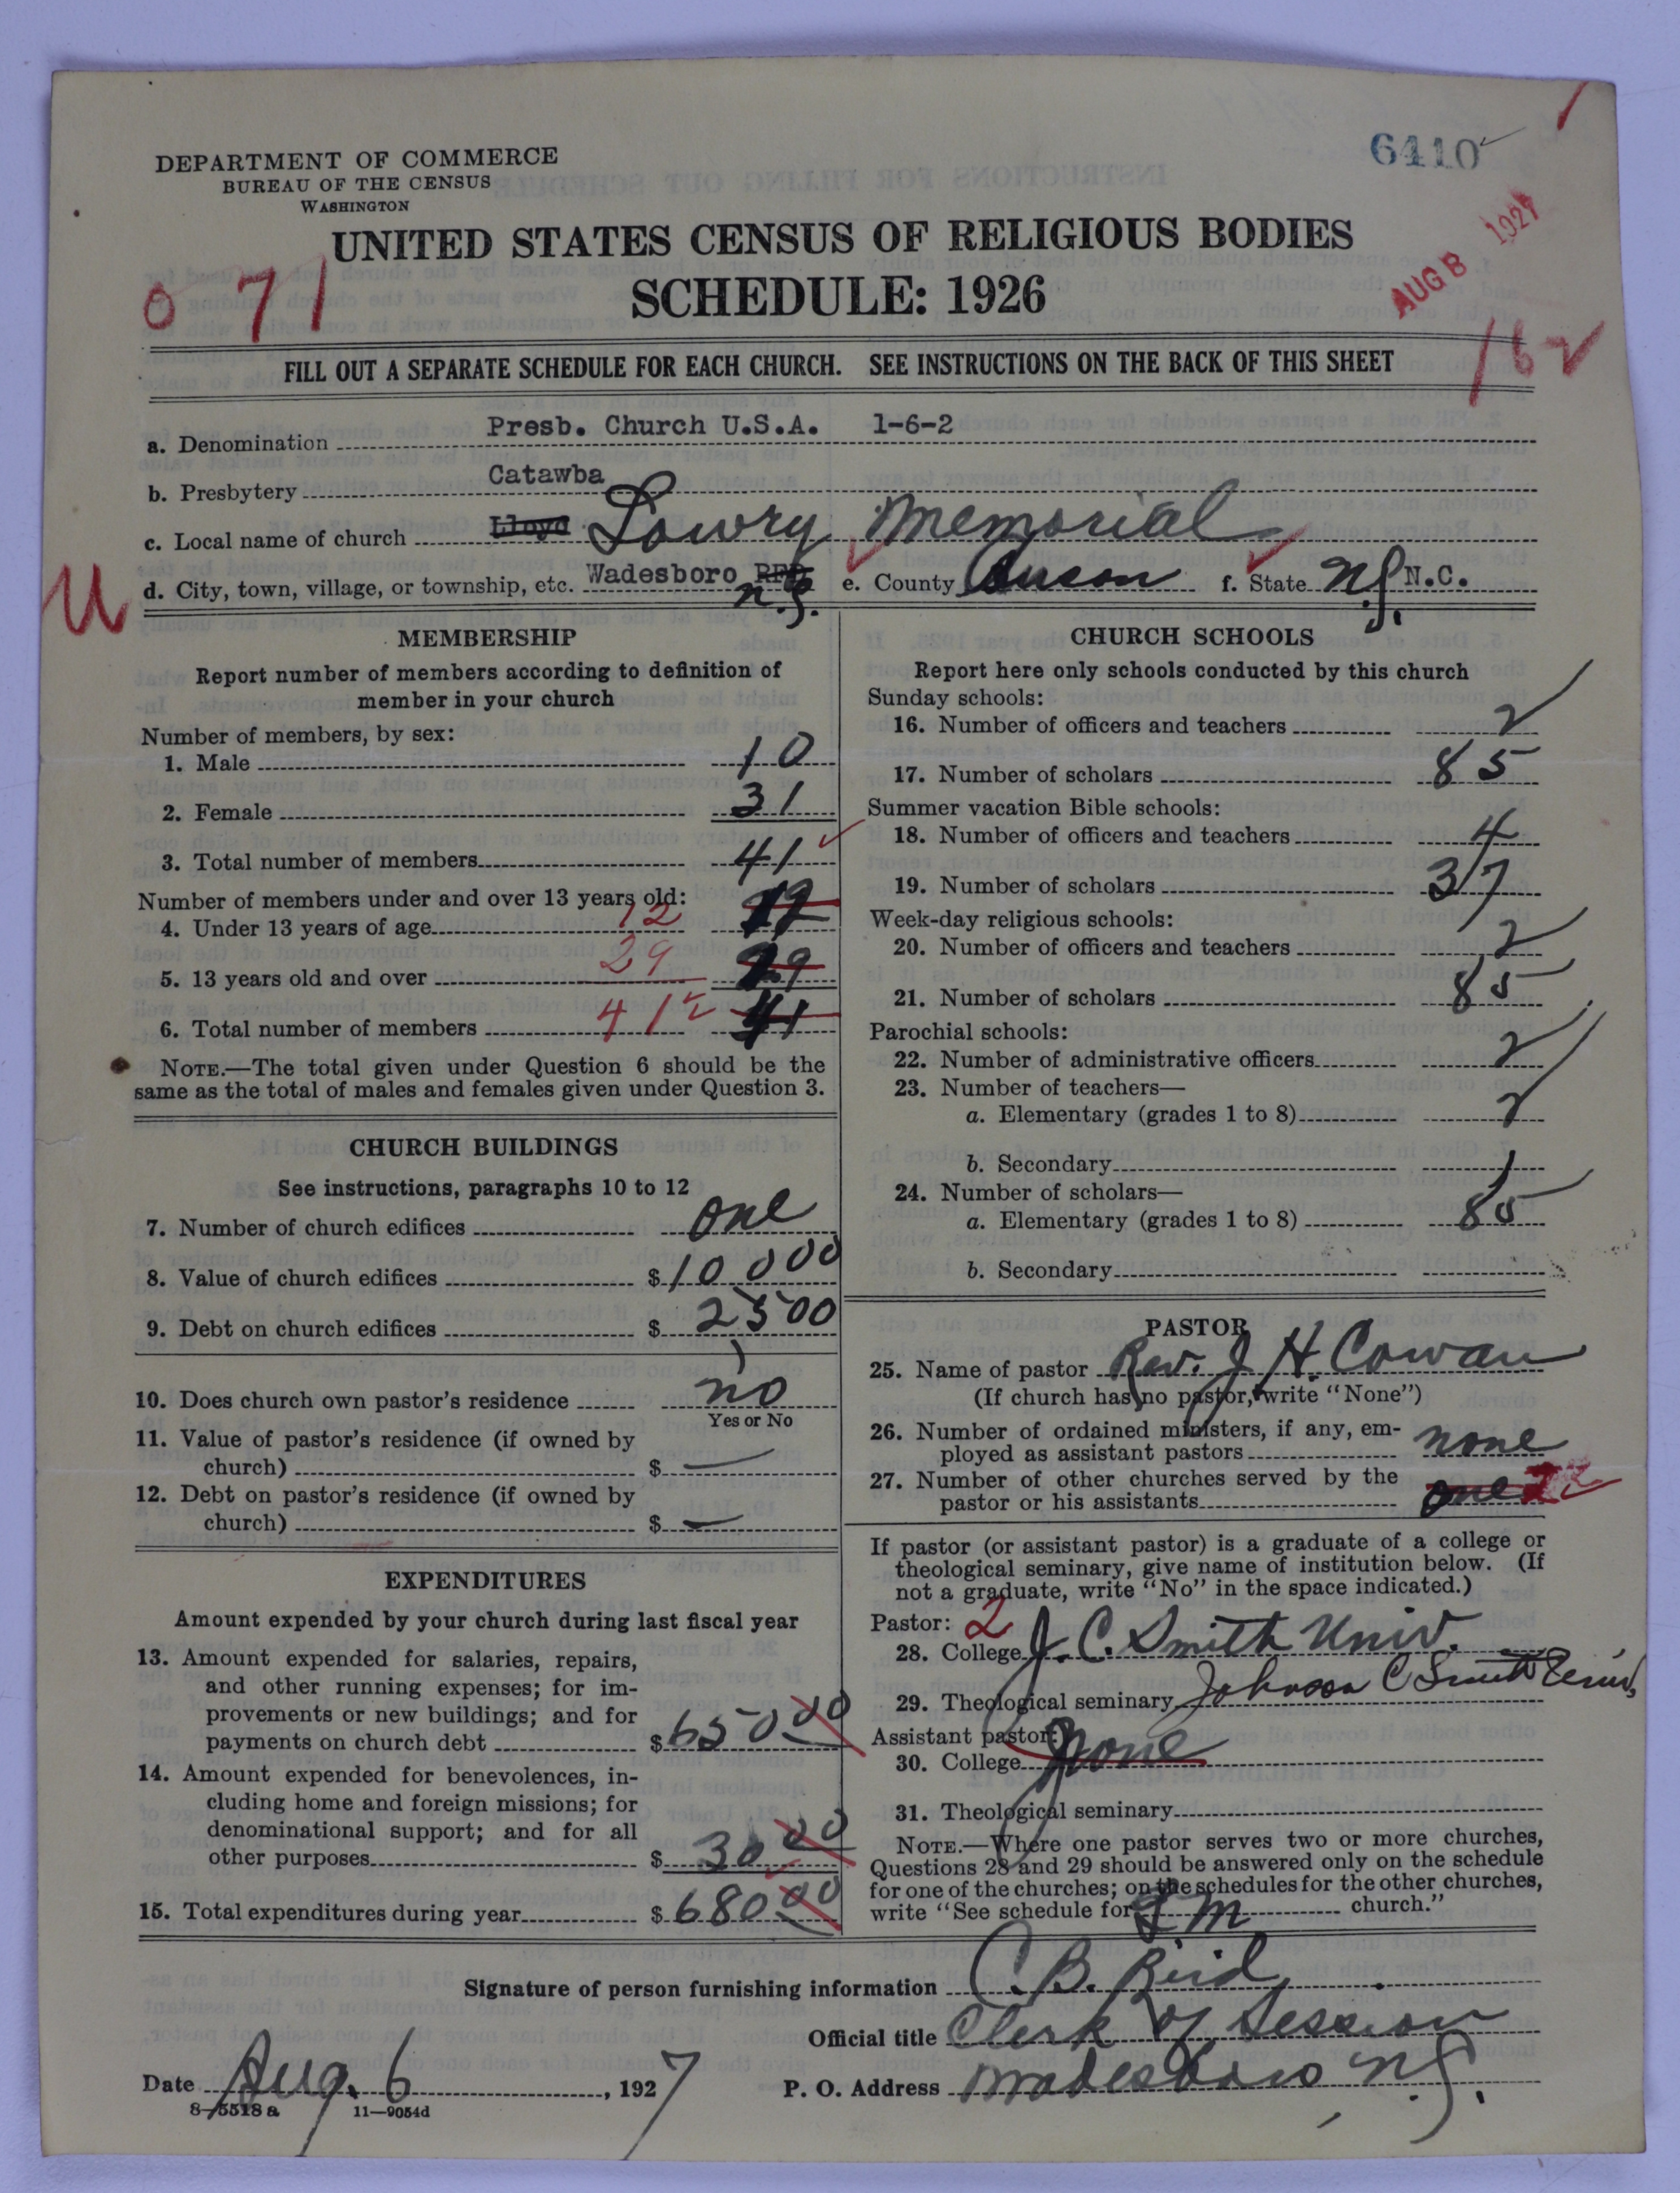 6410
DEPARTMENT OF COMMERCE
BUREAU OF THE CENSUS
WASHINGTON
AUG 8 1927
UNITED STATES CENSUS OF RELIGIOUS BODIES
071
SCHEDULE: 1926
162
FILL OUT A SEPARATE SCHEDULE FOR EACH CHURCH. SEE INSTRUCTIONS ON THE BACK OF THIS SHEET
a. Denomination Presb. Church U.S.A. 1-6-2
b. Presbytery Catawba
c. Local name of church Lloyd Lowry Memorial
U
d. City, town, village, or township, etc. Wadesboro RFD e. County Anson f. State N.C.
MEMBERSHIP
Report number of members according to definition of
member in your church
Number of members, by sex:
1. Male 10
2. Female 31
3. Total number of members 41
Number of members under and over 13 years old:
4. Under 13 years of age 12 12
5. 13 years old and over 29 29
6. Total number of members 41 41
NOTE.—The total given under Question 6 should be the
same as the total of males and females given under Question 3.
CHURCH BUILDINGS
See instructions, paragraphs 10 to 12
7. Number of church edifices one
8. Value of church edifices $10000
9. Debt on church edifices $2500
10. Does church own pastor's residence no
Yes or No
11. Value of pastor's residence (if owned by
church) $ —
12. Debt on pastor's residence (if owned by
church) $ —
EXPENDITURES
Amount expended by your church during last fiscal year
13. Amount expended for salaries, repairs,
and other running expenses; for im-
provements or new buildings; and for
payments on church debt $650 00
14. Amount expended for benevolences, in-
cluding home and foreign missions; for
denominational support; and for all
other purposes $30 00
15. Total expenditures during year $680 00
CHURCH SCHOOLS
Report here only schools conducted by this church
Sunday schools:
16. Number of officers and teachers 2
17. Number of scholars 85
Summer vacation Bible schools:
18. Number of officers and teachers 4
19. Number of scholars 37
Week-day religious schools:
20. Number of officers and teachers 2
21. Number of scholars 85
Parochial schools:
22. Number of administrative officers 2
23. Number of teachers—
a. Elementary (grades 1 to 8) 2
b. Secondary
24. Number of scholars—
a. Elementary (grades 1 to 8) 85
b. Secondary
PASTOR
25. Name of pastor Rev. J. H. Cowan
(If church has no pastor, write "None")
26. Number of ordained ministers, if any, em-
ployed as assistant pastors none
27. Number of other churches served by the
pastor or his assistants one
If pastor (or assistant pastor) is a graduate of a college or
theological seminary, give name of institution below. (If
not a graduate, write "No" in the space indicated.)
Pastor: 2
28. College J. C. Smith Univ.
29. Theological seminary Johnson C Smith
Assistant pastor:
30. College None
31. Theological seminary
NOTE.—Where one pastor serves two or more churches,
Questions 28 and 29 should be answered only on the schedule
for one of the churches; on the schedules for the other churches,
write "See schedule for L M church."
Signature of person furnishing information C. B. Reid
Official title Clerk of Session
Date Aug. 6, 1927
P. O. Address Wadesboro, N.C.
8—5518 a 11—9054d